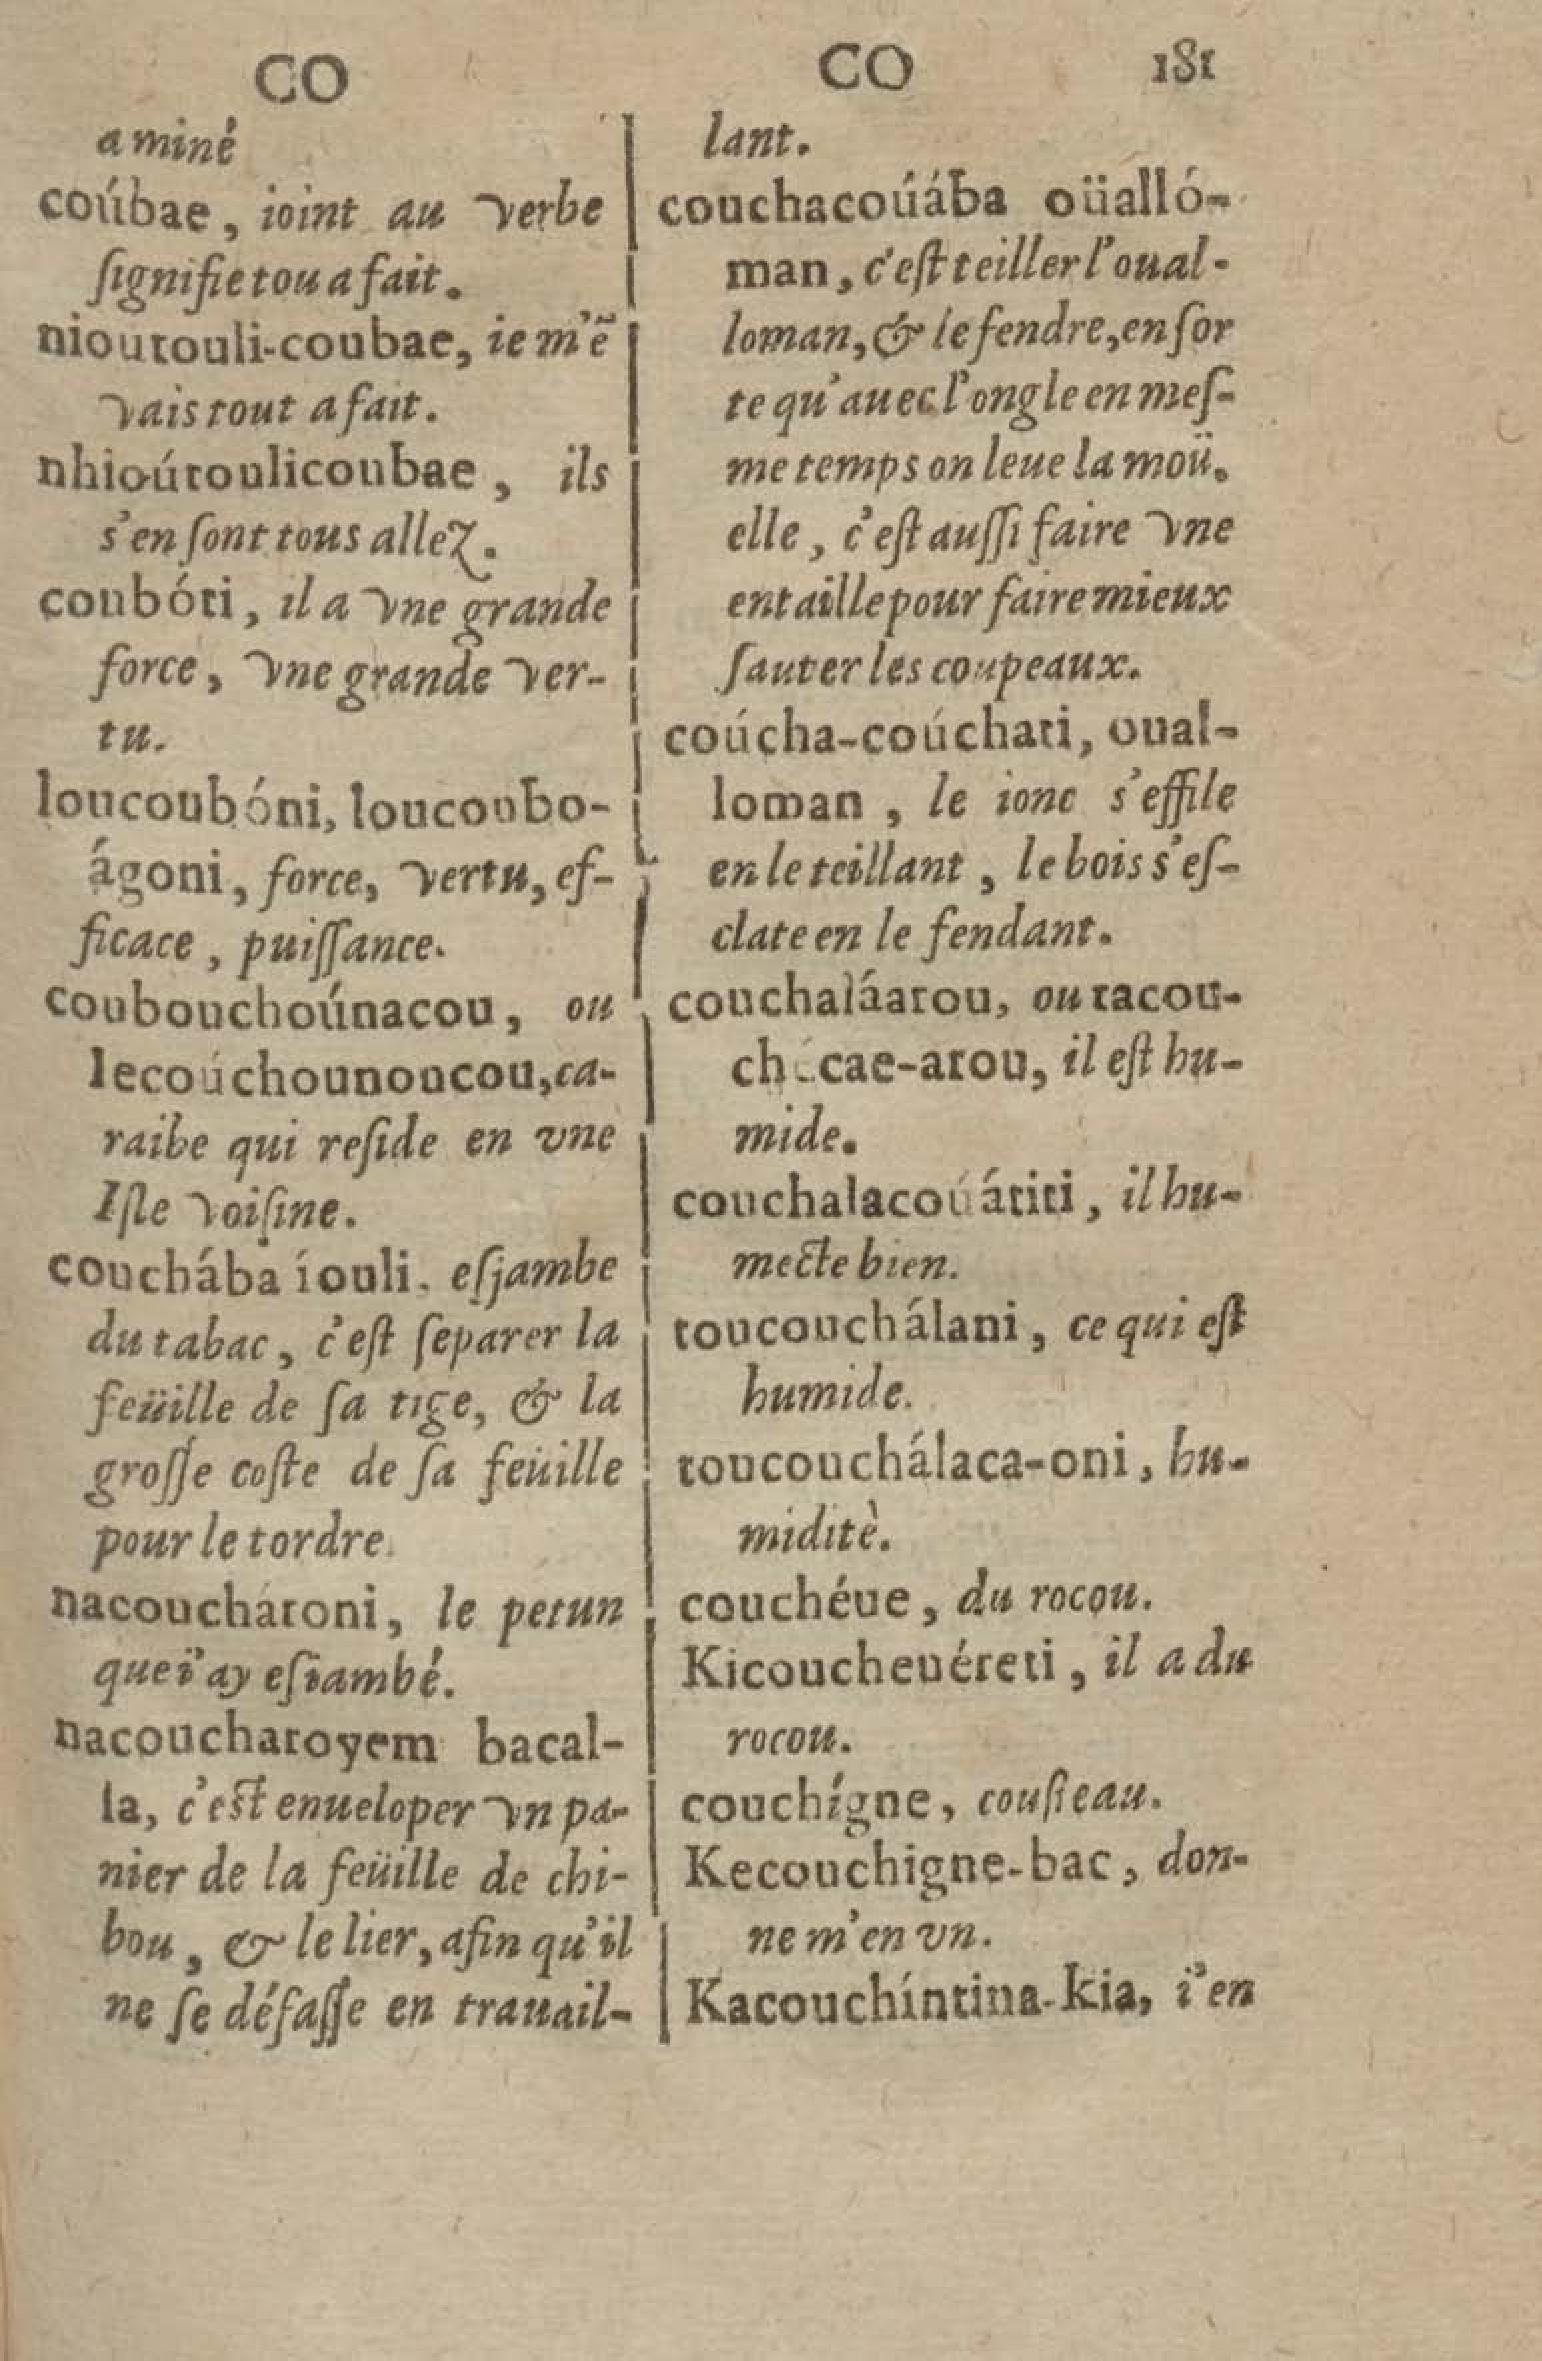 CO
a miné
coúbae, ioint au verbe
ſignifie tou a fait.
nioutouli-coubae, ie m'ẽ
vais tout a fait.
nhioútoulicoubae, ils
s'en ſont tous allez.
coubóti, il a vne grande
force, vne grande ver-
tu.
loucoubóni, loucoubo-
ágoni, force, vertu, ef-
ficace, puiſſance.
coubouchoúnacou, ou
lecoúchounoucou, ca-
raibe qui reſide en vne
Iſle voiſine.
couchába íouli, eſjambe
du tabac, c'eſt ſeparer la
feüille de ſa tige, & la
groſſe coſte de ſa feüille
pour le tordre.
nacouchároni, le petun
que i'ay eſiambé.
nacoucharoyem bacal-
la, c'eſt enueloper vn pa-
nier de la feüille de chi-
bou, & le lier, afin qu'il
ne ſe défaſſe en trauail-
CO 181
lant.
couchacoúába oüalló-
man, c'eſt teiller l'oual-
loman, & le fendre, en ſor
te qu'auec l'ongle en meſ-
me temps on leue la moü.
elle, c'eſt auſſi faire vne
entaille pour faire mieux
ſauter les coupeaux.
coúcha-coúchati, oual-
loman, le ionc s'effile
en le teillant, le bois s'eſ-
clate en le fendant.
couchaláarou, ou tacou-
cae-arou, il eſt hu-
mide.
couchalacoúátiti, il hu-
mecte bien.
toucouchálani, ce qui eſt
humide.
toucouchálaca-oni, hu-
miditè.
couchéue, du rocou.
Kicoucheuéreti, il a du
rocou.
couchígne, couſteau.
Kecouchigne-bac, don-
ne m'en vn.
Kacouchíntina-kia, i'en